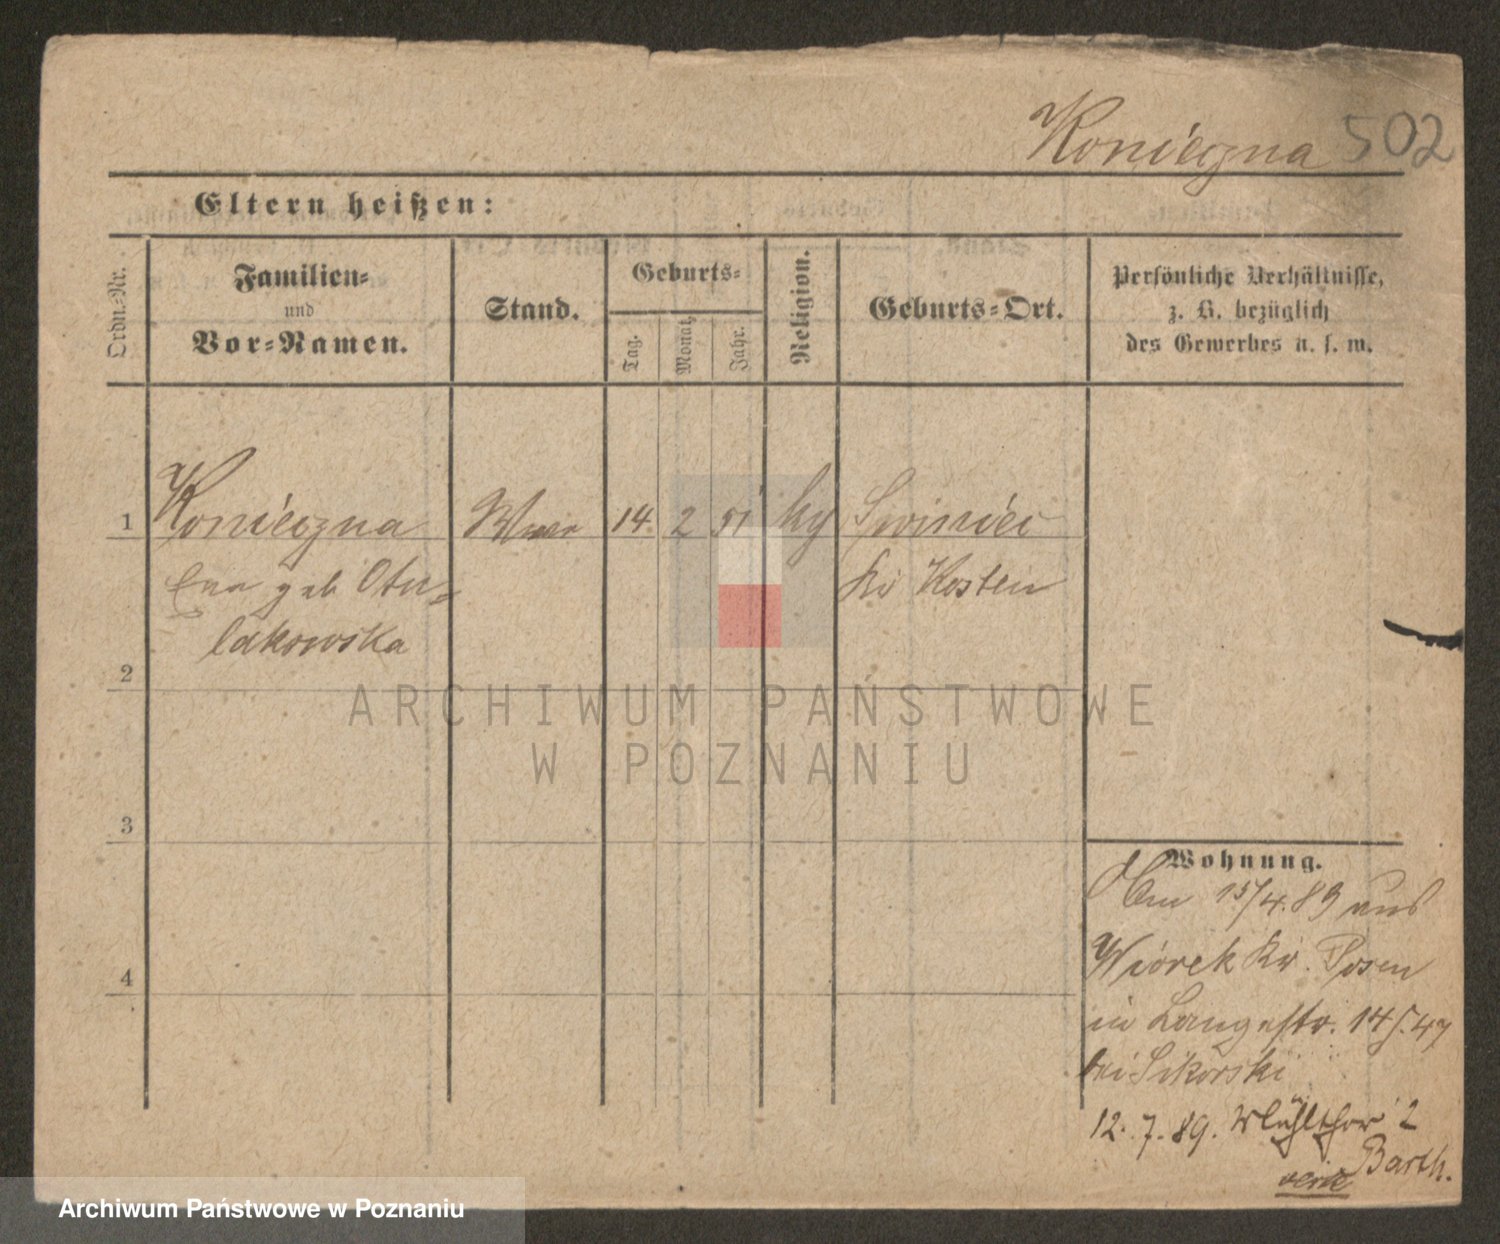 Konieczna 502
Eltern heißen:
Ordn.-Nr.
Familien-
und
Vor-Namen.
Stand.
Geburts-
Tag.
Monat.
Jahr.
Religion.
Geburts-Ort.
Persönliche Verhältnisse,
z. B. bezüglich
des Gewerbes u. s. w.
1 Konieczna 14 2 51 Swiniec
geb Otu-
Kr Kosten
lakowska
2
3
4
Wohnung.
15/4.89 aus
Wiórek Kr. Posen
in Langestr. 14
bei Sikorski
12.7.89. Mühlthor 2
Barth.
ARCHIWUM PAŃSTWOWE
W POZNANIU
Archiwum Państwowe w Poznaniu